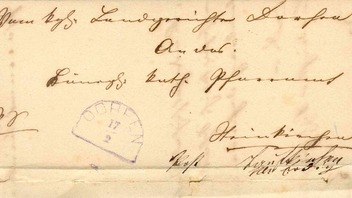 Vom kgl. Landgerichte Dorfen
An das
Königl. kath. Pfarramt
DORFEN
17
2
Steinkirchen
Post